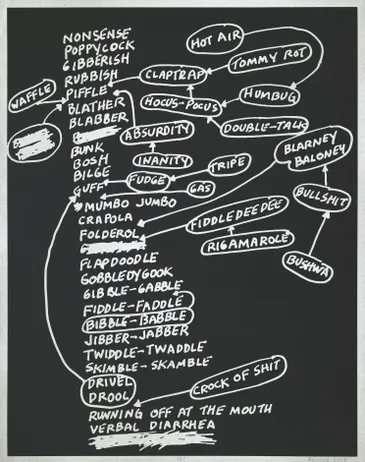 NONSENSE
POPPYCOCK
GIBBERISH
RUBBISH
PIFFLE
BLATHER
BLABBER
BUNK
BOSH
BILGE
GUFF
MUMBO JUMBO
CRAPOLA
FOLDEROL
FLAPDOODLE
GOBBLEDYGOOK
GIBBLE-GABBLE
FIDDLE-FADDLE
BIBBLE-BABBLE
JIBBER-JABBER
TWIDDLE-TWADDLE
SKIMBLE-SKAMBLE
DRIVEL
DROOL
RUNNING OFF AT THE MOUTH
VERBAL DIARRHEA
WAFFLE
HOT AIR
TOMMY ROT
CLAPTRAP
HUMBUG
HOCUS-POCUS
DOUBLE-TALK
ABSURDITY
INANITY
FUDGE
TRIPE
GAS
BLARNEY
BALONEY
BULLSHIT
BUSHWA
FIDDLEDEEDEE
RIGAMAROLE
CROCK OF SHIT